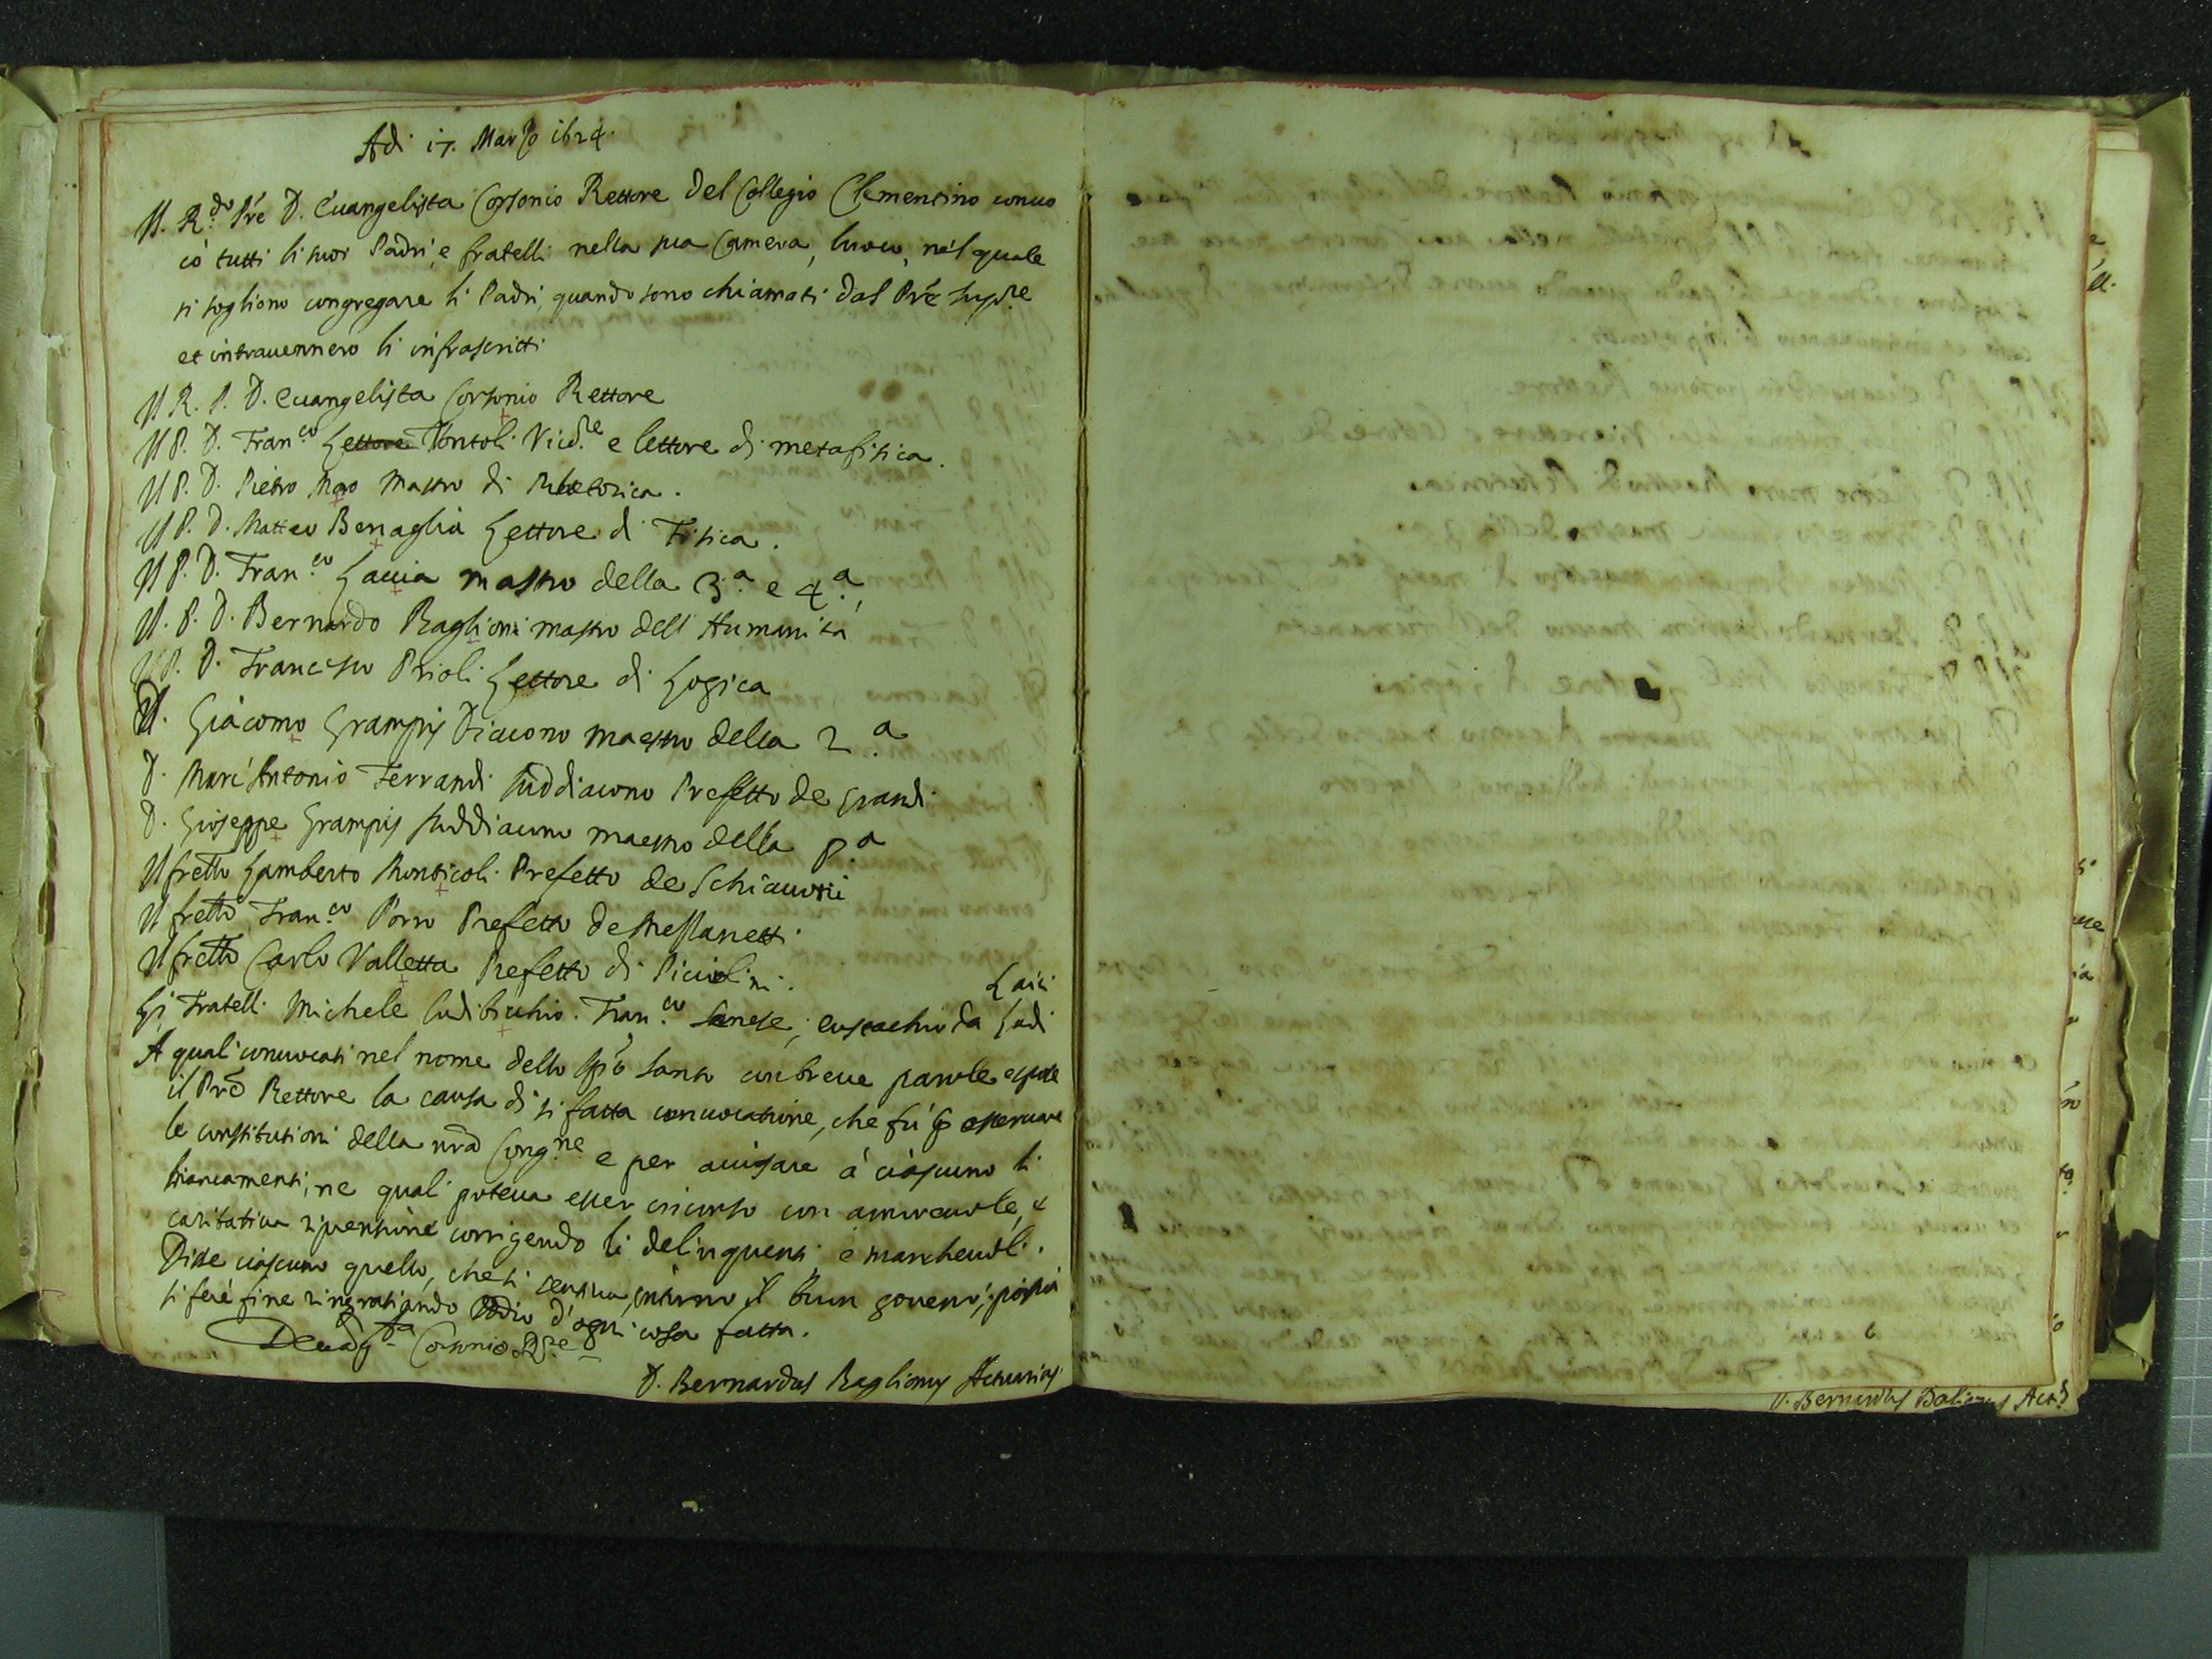 Adi 17. Marzo 1624.
Il R.do P̃re D. Euangelista Corsonio Rettore del Collegio Clementino conuo
cò tutti li suoi Padri, e fratelli nella sua Camera, luoco, nel quale
si sogliono congregare li Padri, quando sono chiamati dal P̃re Sup.re
et intrauennero li infrascritti
Il R. P. D. Euangelista Corsonio Rettore
Il P. D. Fran.co Lettore Tontoli Vicer.re e lettore di metafisica.
Il P. D. Pietro Moro Mastro di Rhetorica.
Il P. D. Matteo Benaglia Lettore di Fisica.
Il P. D. Fran.co Laccia mastro della 3.a e 4.a
Il. P. D. Bernardo Baglioni mastro dell'Humanità
Il P. D. Francesco Prioli Lettore di Logica
D. Giacomo Grampis Diacono maestro della 2.a
D. Marc'Antonio Ferrandi suddiacono Prefetto de Grandi
D. Gioseppe Grampis suddiacono maestro della p.a
Il frello Lamberto Monticoli Prefetto de Schiauoni
Il frello Fran.co Porro Prefetto de Mezzanetti
Il frello Carlo Valletta Prefetto di Piccolini.
Laici
Li Fratelli Michele Fran.co Senese, Eustachio da Lodi
A quali conuocati nel nome dello Sp̃o Santo con breue parole espose
il Prẽ Rettore la causa di si fatta conuocatione, che fù p osseruare
le constitutioni della nrã Cong.ne e per auisare à ciascuno li
mancamenti, ne quali poteua esser incorso con amoreuole, e
caritatiua riprensione corrigendo li delinquenti, e
Disse ciascuno quello, che si sentiua, intorno il buon gouerno, poscia
si fece fine ringratiando Iddio d'ogni cosa fatta.
D Euãg.ta Corsonio R.re
D. Bernardus Baglionus Actuarius
D. Bernardus Balionus Act.s